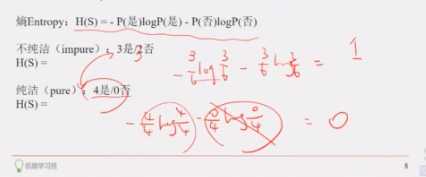 熵Entropy：H(S) = - P(是)logP(是) - P(否)logP(否)
不纯洁（impure）：3是/2否
3
H(S) =
- 3/6 log 3/6 - 3/6 log 3/6 = 1
纯洁（pure）：4是/0否
H(S) =
- 4/4 log 4/4 - 0/4 log 0/4 = 0
8